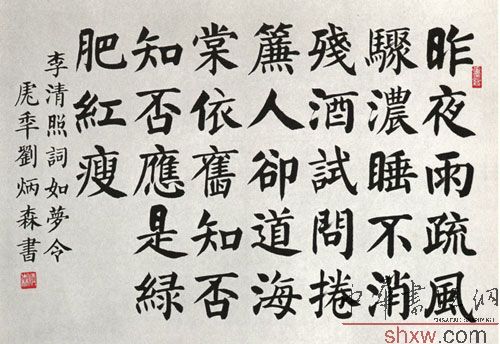 昨夜雨疏風
驟濃睡不消
殘酒試問捲
簾人卻道海
棠依舊知否
知否應是緑
肥紅瘦
李清照詞如夢令
虎秊劉炳森書
shxw.com